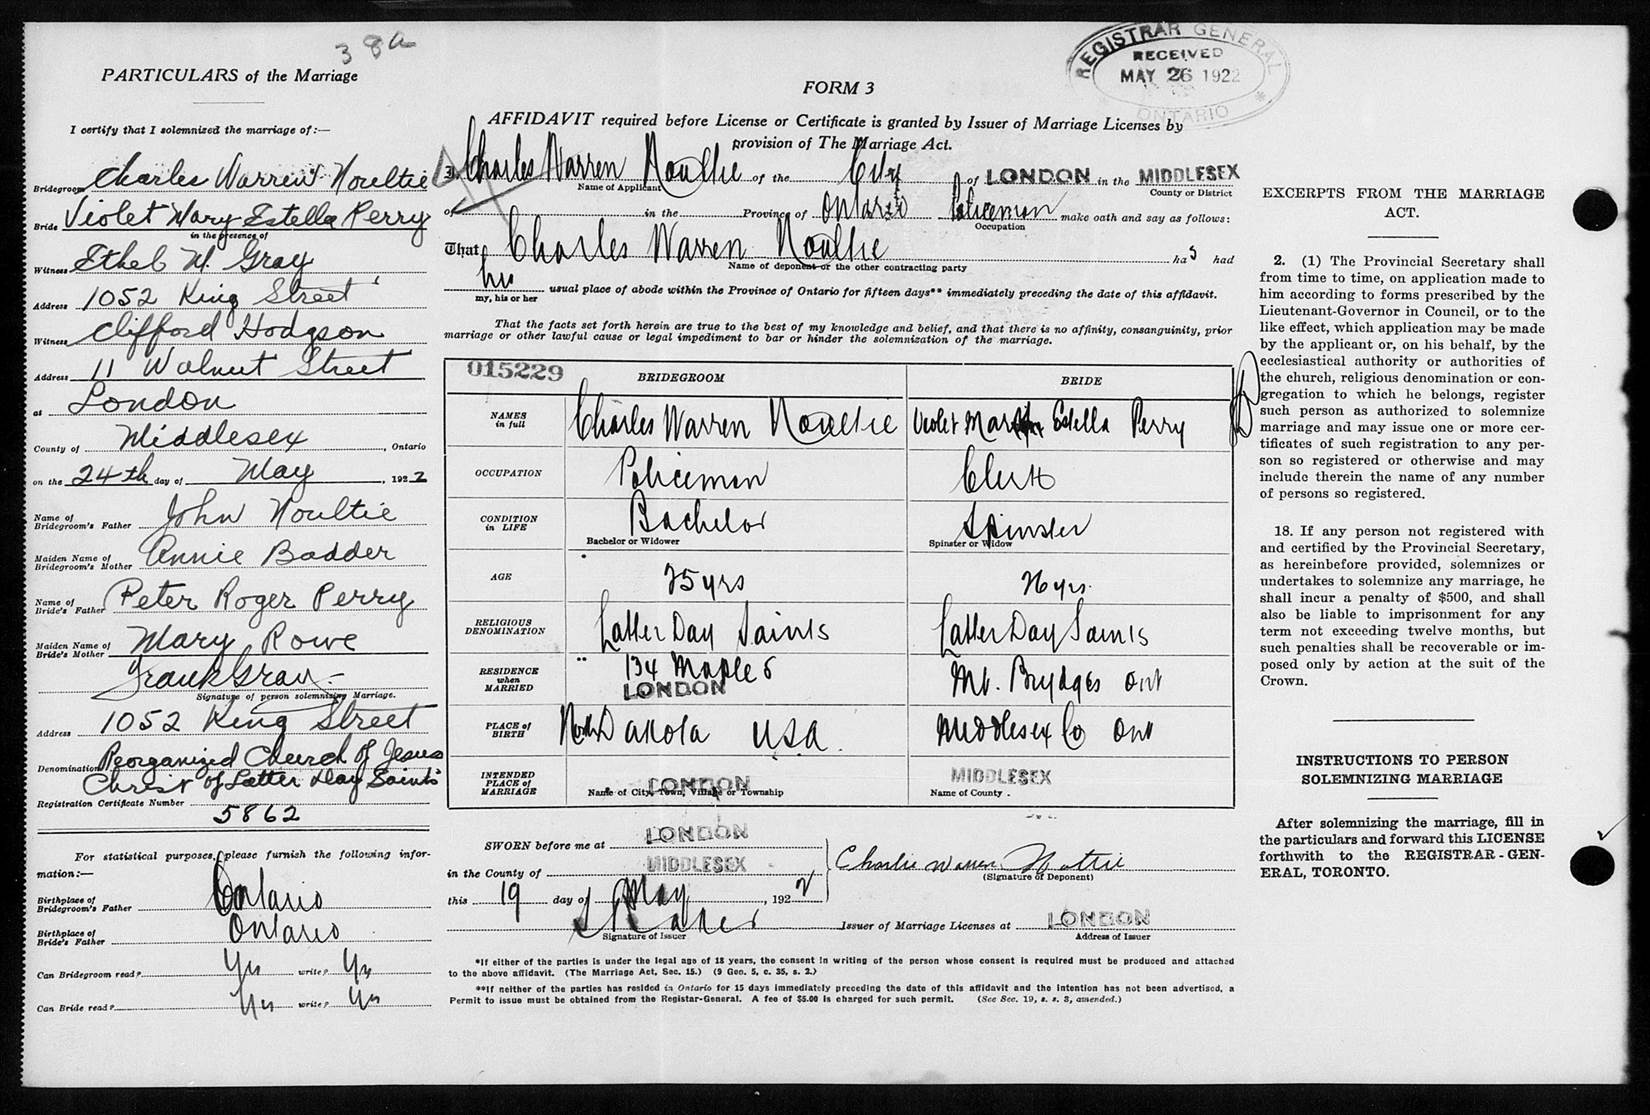 38a
PARTICULARS of the Marriage
I certify that I solemnized the marriage of:—
Bridegroom Charles Warren Noultie
Bride Violet Mary Estella Perry
in the presence of
Witness Ethel M. Gray
Address 1052 King Street
Witness Clifford Hodgson
Address 11 Walnut Street
at London
County of Middlesex, Ontario
on the 24th day of May, 1922
Name of Bridegroom's Father John Noultie
Maiden Name of Bridegroom's Mother Annie Badder
Name of Bride's Father Peter Roger Perry
Maiden Name of Bride's Mother Mary Rowe
Frank Gray
Signature of person solemnizing Marriage.
Address 1052 King Street
Denomination Reorganized Church of Jesus
Christ of Latter Day Saints
Registration Certificate Number
5862
For statistical purposes, please furnish the following infor-
mation:—
Birthplace of Bridegroom's Father Ontario
Birthplace of Bride's Father Ontario
Can Bridegroom read? Yes write? Yes
Can Bride read? Yes write? Yes
REGISTRAR GENERAL
RECEIVED
MAY 26 1922
ONTARIO
FORM 3
AFFIDAVIT required before License or Certificate is granted by Issuer of Marriage Licenses by
provision of The Marriage Act.
I Charles Warren Noultie of the City of LONDON in the MIDDLESEX
Name of Applicant County or District
of in the Province of Ontario Policeman make oath and say as follows:
Occupation
That Charles Warren Noultie has had
Name of deponent or the other contracting party
his usual place of abode within the Province of Ontario for fifteen days** immediately preceding the date of this affidavit.
my, his or her
That the facts set forth herein are true to the best of my knowledge and belief, and that there is no affinity, consanguinity, prior
marriage or other lawful cause or legal impediment to bar or hinder the solemnization of the marriage.
015229 BRIDEGROOM BRIDE
NAMES in full Charles Warren Noultie Violet Mary Estella Perry
OCCUPATION Policeman Clerk
CONDITION in LIFE Bachelor Spinster
Bachelor or Widower Spinster or Widow
AGE 25 yrs 26 yrs.
RELIGIOUS DENOMINATION Latter Day Saints Latter Day Saints
RESIDENCE when MARRIED 134 Maple S LONDON Mt. Brydges Ont
PLACE of BIRTH North Dakota USA. Middlesex Co Ont
INTENDED PLACE of MARRIAGE LONDON MIDDLESEX
Name of City, Town, Village or Township Name of County.
SWORN before me at LONDON
in the County of MIDDLESEX
this 19 day of May, 1922
Charlie Warren Noltie
(Signature of Deponent)
Signature of Issuer
Issuer of Marriage Licenses at LONDON
Address of Issuer
*If either of the parties is under the legal age of 18 years, the consent in writing of the person whose consent is required must be produced and attached
to the above affidavit. (The Marriage Act, Sec. 15.) (9 Geo. 5, c. 35, s. 2.)
**If neither of the parties has resided in Ontario for 15 days immediately preceding the date of this affidavit and the intention has not been advertised, a
Permit to issue must be obtained from the Registar-General. A fee of $5.00 is charged for such permit. (See Sec. 19, s. s. 3, amended.)
EXCERPTS FROM THE MARRIAGE
ACT.
2. (1) The Provincial Secretary shall
from time to time, on application made to
him according to forms prescribed by the
Lieutenant-Governor in Council, or to the
like effect, which application may be made
by the applicant or, on his behalf, by the
ecclesiastical authority or authorities of
the church, religious denomination or con-
gregation to which he belongs, register
such person as authorized to solemnize
marriage and may issue one or more cer-
tificates of such registration to any per-
son so registered or otherwise and may
include therein the name of any number
of persons so registered.
18. If any person not registered with
and certified by the Provincial Secretary,
as hereinbefore provided, solemnizes or
undertakes to solemnize any marriage, he
shall incur a penalty of $500, and shall
also be liable to imprisonment for any
term not exceeding twelve months, but
such penalties shall be recoverable or im-
posed only by action at the suit of the
Crown.
INSTRUCTIONS TO PERSON
SOLEMNIZING MARRIAGE
After solemnizing the marriage, fill in
the particulars and forward this LICENSE
forthwith to the REGISTRAR-GEN-
ERAL, TORONTO.